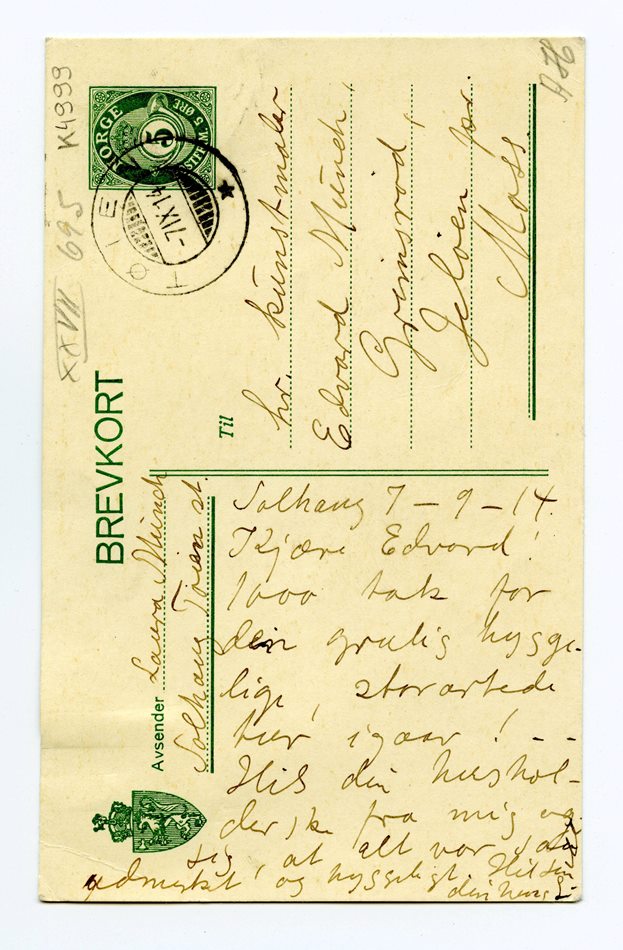 BREVKORT
NORGE
5
TØIEN
-7 IX 14
K4999
XXVII 695
AH
Til
hr. kunstmaler
Edvard Münch,
Grimsrød,
Jeløen pr.
Moss.
Avsender Laura Münch
Solhaug Tøien st.
Solhaug 7-9-14.
Kjære Edvard!
1000 tak for
din gralig hygge-
lige, storartede
tur igaar! --
Hils din hushol-
derske fra mig og
sig, at alt var saa
udmerket, og hyggeligt. Hilsen
din heng.